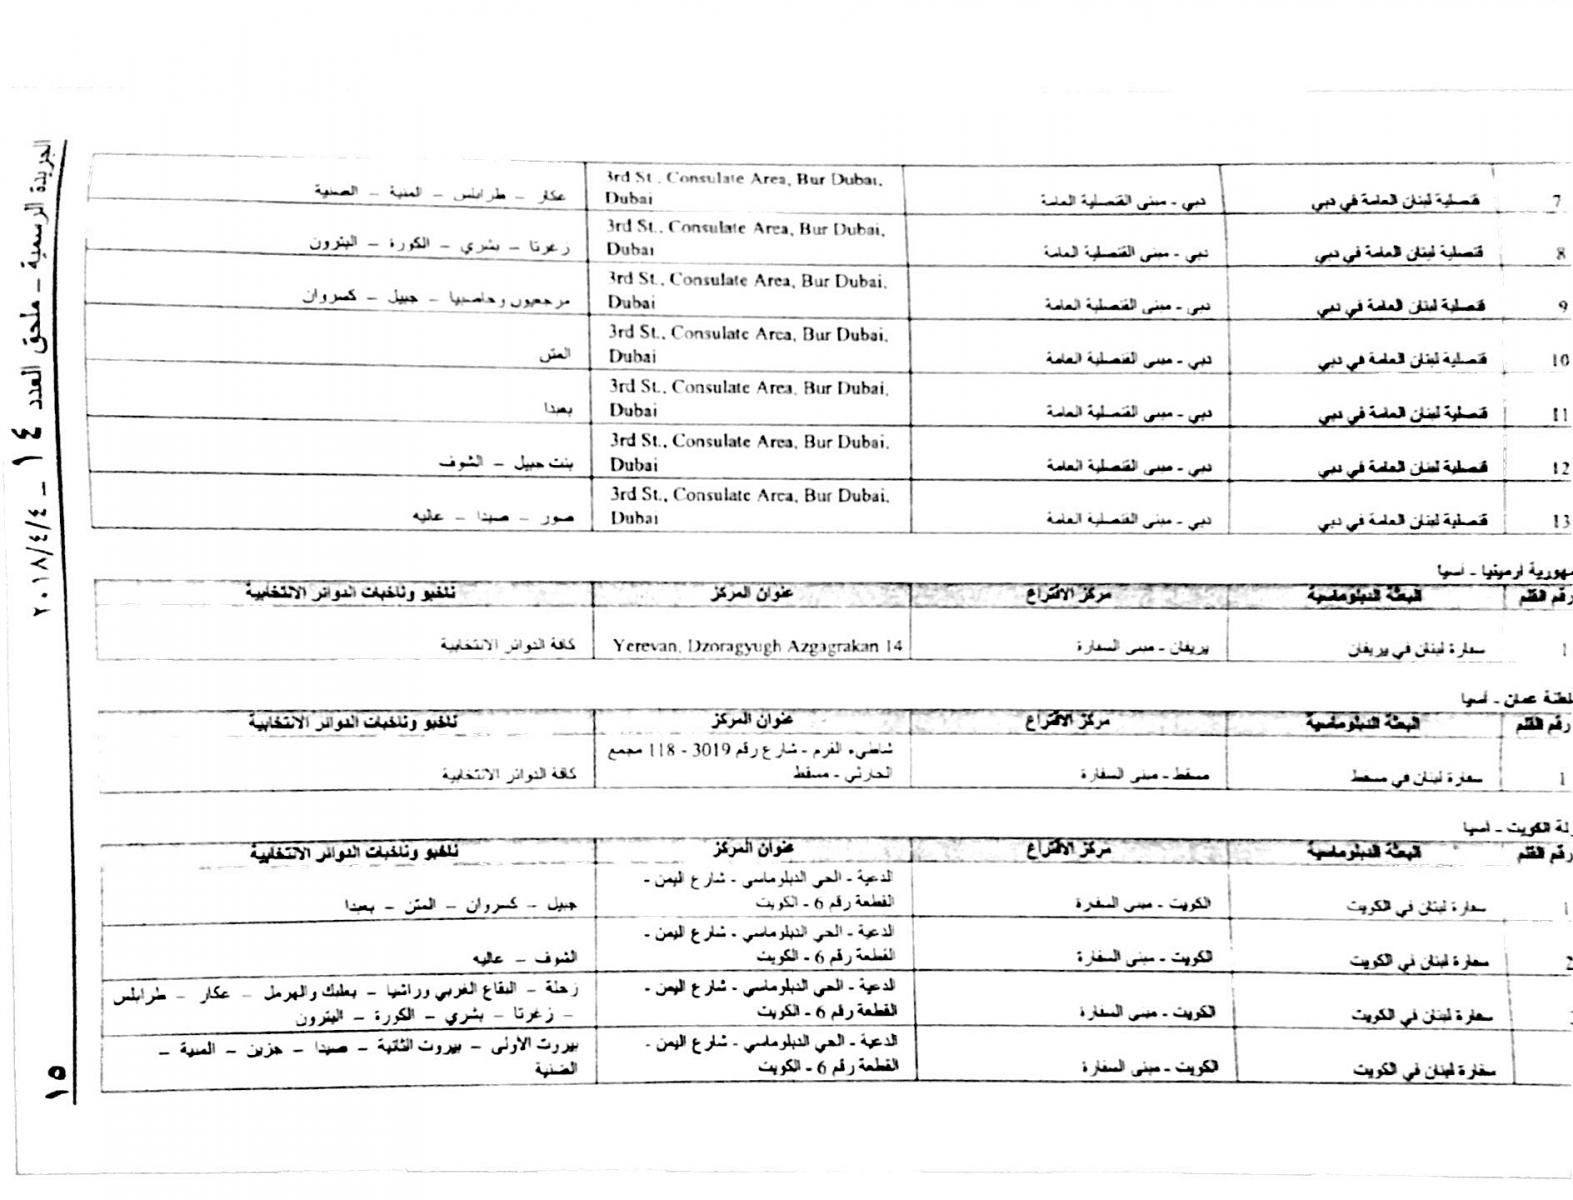 الجريدة الرسمية – ملحق العدد ١٤ – ٢٠١٨/٤/٤
7 قنصلية لبنان العامة في دبي دبي - مبنى القنصلية العامة 3rd St., Consulate Area, Bur Dubai, عكار – طرابلس – المنية – الضنية
Dubai
8 قنصلية لبنان العامة في دبي دبي - مبنى القنصلية العامة 3rd St., Consulate Area, Bur Dubai, زغرتا – بشري – الكورة – البترون
Dubai
9 قنصلية لبنان العامة في دبي دبي - مبنى القنصلية العامة 3rd St., Consulate Area, Bur Dubai, مرجعيون وحاصبيا – جبيل – كسروان
Dubai
10 قنصلية لبنان العامة في دبي دبي - مبنى القنصلية العامة 3rd St., Consulate Area, Bur Dubai, المتن
Dubai
11 قنصلية لبنان العامة في دبي دبي - مبنى القنصلية العامة 3rd St., Consulate Area, Bur Dubai, بعبدا
Dubai
12 قنصلية لبنان العامة في دبي دبي - مبنى القنصلية العامة 3rd St., Consulate Area, Bur Dubai, بنت جبيل – الشوف
Dubai
13 قنصلية لبنان العامة في دبي دبي - مبنى القنصلية العامة 3rd St., Consulate Area, Bur Dubai, صور – صيدا – عاليه
Dubai
مهورية أرمينيا - آسيا
رقم القلم البعثة الدبلوماسية مركز الاقتراع عنوان المركز ناخبو وناخبات الدوائر الانتخابية
1 سفارة لبنان في يريفان يريفان - مبنى السفارة Yerevan, Dzoragyugh Azgagrakan 14 كافة الدوائر الانتخابية
لطنة عمان - آسيا
رقم القلم البعثة الدبلوماسية مركز الاقتراع عنوان المركز ناخبو وناخبات الدوائر الانتخابية
1 سفارة لبنان في مسقط مسقط - مبنى السفارة شاطىء القرم - شارع رقم 3019 - 118 مجمع كافة الدوائر الانتخابية
الحارثي - مسقط
ولة الكويت - آسيا
رقم القلم البعثة الدبلوماسية مركز الاقتراع عنوان المركز ناخبو وناخبات الدوائر الانتخابية
1 سفارة لبنان في الكويت الكويت - مبنى السفارة الدعية - الحي الدبلوماسي - شارع اليمن - جبيل – كسروان – المتن – بعبدا
القطعة رقم 6 - الكويت
2 سفارة لبنان في الكويت الكويت - مبنى السفارة الدعية - الحي الدبلوماسي - شارع اليمن - الشوف – عاليه
القطعة رقم 6 - الكويت
سفارة لبنان في الكويت الكويت - مبنى السفارة الدعية - الحي الدبلوماسي - شارع اليمن - زحلة – البقاع الغربي وراشيا – بعلبك والهرمل – عكار – طرابلس
القطعة رقم 6 - الكويت – زغرتا – بشري – الكورة – البترون
سفارة لبنان في الكويت الكويت - مبنى السفارة الدعية - الحي الدبلوماسي - شارع اليمن - بيروت الأولى – بيروت الثانية – صيدا – جزين – المنية –
القطعة رقم 6 - الكويت الضنية
١٥